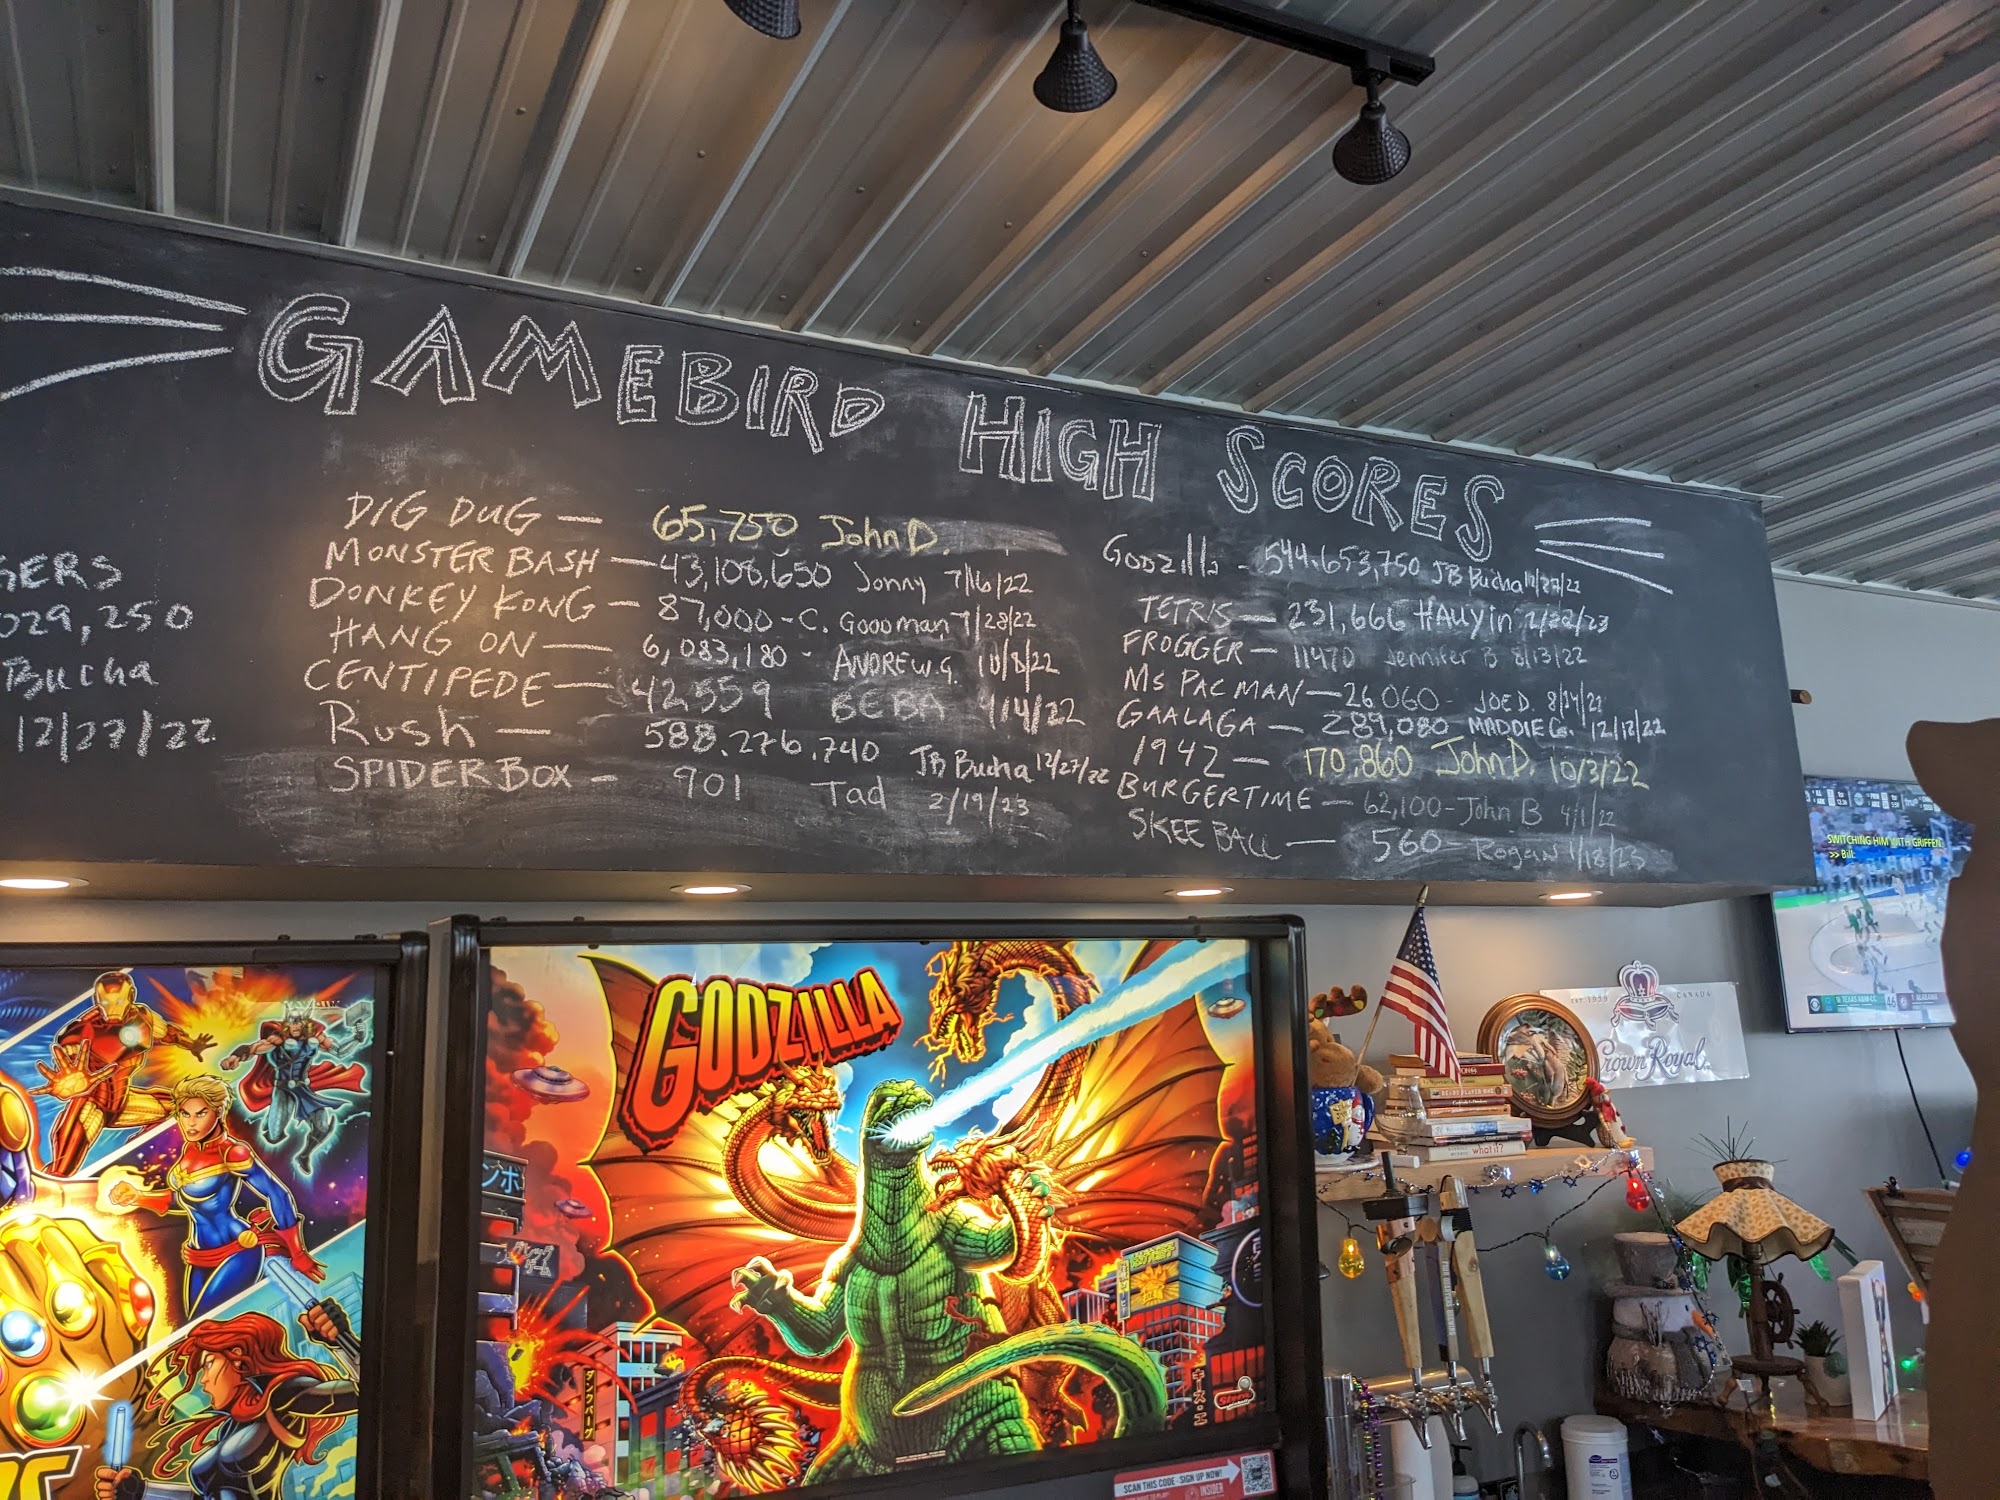 GAMEBIRD HIGH SCORES
GERS
029,250
Bucha
12/27/22
DIG DUG — 65,750 John D.
MONSTER BASH — 43,108,650 Jonny 7/16/22
DONKEY KONG — 87,000 - C. Goodman 7/28/22
HANG ON — 6,083,180 - ANDREW.G. 10/8/22
CENTIPEDE — 42,559 BEBA 4/14/22
Rush — 588.276,740 JB Bucha 12/27/22
SPIDER BOX - 901 Tad 2/19/23
Godzilla - 544,653,750 JB Bucha 12/27/22
TETRIS — 231,666 HAuyin 2/22/23
FROGGER — 11470 Jennifer B 8/13/22
MS PAC MAN — 26,060 - JOE D. 8/14/22
GAALAGA — 289,080 MADDIE G. 12/12/22
1942 — 170,860 John D. 10/3/22
BURGERTIME — 62,100 - John B 4/1/22
SKEE BALL — 560 - Rogan 1/18/23
SWITCHING HIM WITH GRIFFEN
>> Bill:
TEXAS A&M-CC
ALABAMA
GODZILLA
EST. 1939
CANADA
Crown Royal
READY PLAYER ONE
what if?
SCAN THIS CODE - SIGN UP NOW!
INSIDER